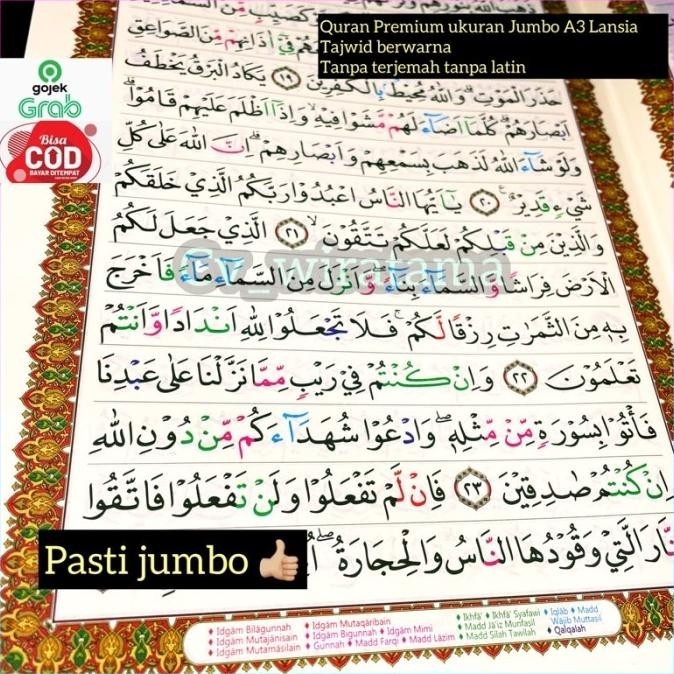 Quran Premium ukuran Jumbo A3 Lansia
Tajwid berwarna
Tanpa terjemah tanpa latin
gojek
Grab
Bisa
COD
BAYAR DITEMPAT
فِيْٓ اٰذَانِهِمْ مِّنَ الصَّوَاعِقِ
حَذَرَ الْمَوْتِۗ وَاللّٰهُ مُحِيْطٌۢ بِالْكٰفِرِيْنَ ١٩ يَكَادُ الْبَرْقُ يَخْطَفُ
اَبْصَارَهُمْۗ كُلَّمَآ اَضَاۤءَ لَهُمْ مَّشَوْا فِيْهِۙ وَاِذَآ اَظْلَمَ عَلَيْهِمْ قَامُوْاۗ
وَلَوْ شَاۤءَ اللّٰهُ لَذَهَبَ بِسَمْعِهِمْ وَاَبْصَارِهِمْۗ اِنَّ اللّٰهَ عَلٰى كُلِّ
شَيْءٍ قَدِيْرٌࣖ ٢٠ يٰٓاَيُّهَا النَّاسُ اعْبُدُوْا رَبَّكُمُ الَّذِيْ خَلَقَكُمْ
وَالَّذِيْنَ مِنْ قَبْلِكُمْ لَعَلَّكُمْ تَتَّقُوْنَۙ ٢١ الَّذِيْ جَعَلَ لَكُمُ
Cv_wiratama
الْاَرْضَ فِرَاشًا وَّالسَّمَاۤءَ بِنَاۤءًۖ وَّاَنْزَلَ مِنَ السَّمَاۤءِ مَاۤءً فَاَخْرَجَ
بِهٖ مِنَ الثَّمَرٰتِ رِزْقًا لَّكُمْۚ فَلَا تَجْعَلُوْا لِلّٰهِ اَنْدَادًا وَّاَنْتُمْ
تَعْلَمُوْنَ ٢٢ وَاِنْ كُنْتُمْ فِيْ رَيْبٍ مِّمَّا نَزَّلْنَا عَلٰى عَبْدِنَا
فَأْتُوْا بِسُوْرَةٍ مِّنْ مِّثْلِهٖۖ وَادْعُوْا شُهَدَاۤءَكُمْ مِّنْ دُوْنِ اللّٰهِ
اِنْ كُنْتُمْ صٰدِقِيْنَ ٢٣ فَاِنْ لَّمْ تَفْعَلُوْا وَلَنْ تَفْعَلُوْا فَاتَّقُوا
النَّارَ الَّتِيْ وَقُوْدُهَا النَّاسُ وَالْحِجَارَةُۖ
Pasti jumbo 👍🏻
Idgām Bilāgunnah
Idgām Mutajānisain
Idgām Mutamāṡilain
Idgām Mutaqāribain
Idgām Bigunnah
Idgām Mimi
Gunnah
Madd Farqī
Madd Lāzim
Ikhfā'
Ikhfā' Syafawi
Madd Jā'iz Munfaṣil
Madd Silah Tawīlah
Iqlāb
Madd
Wājib Muttaṣil
Qalqalah